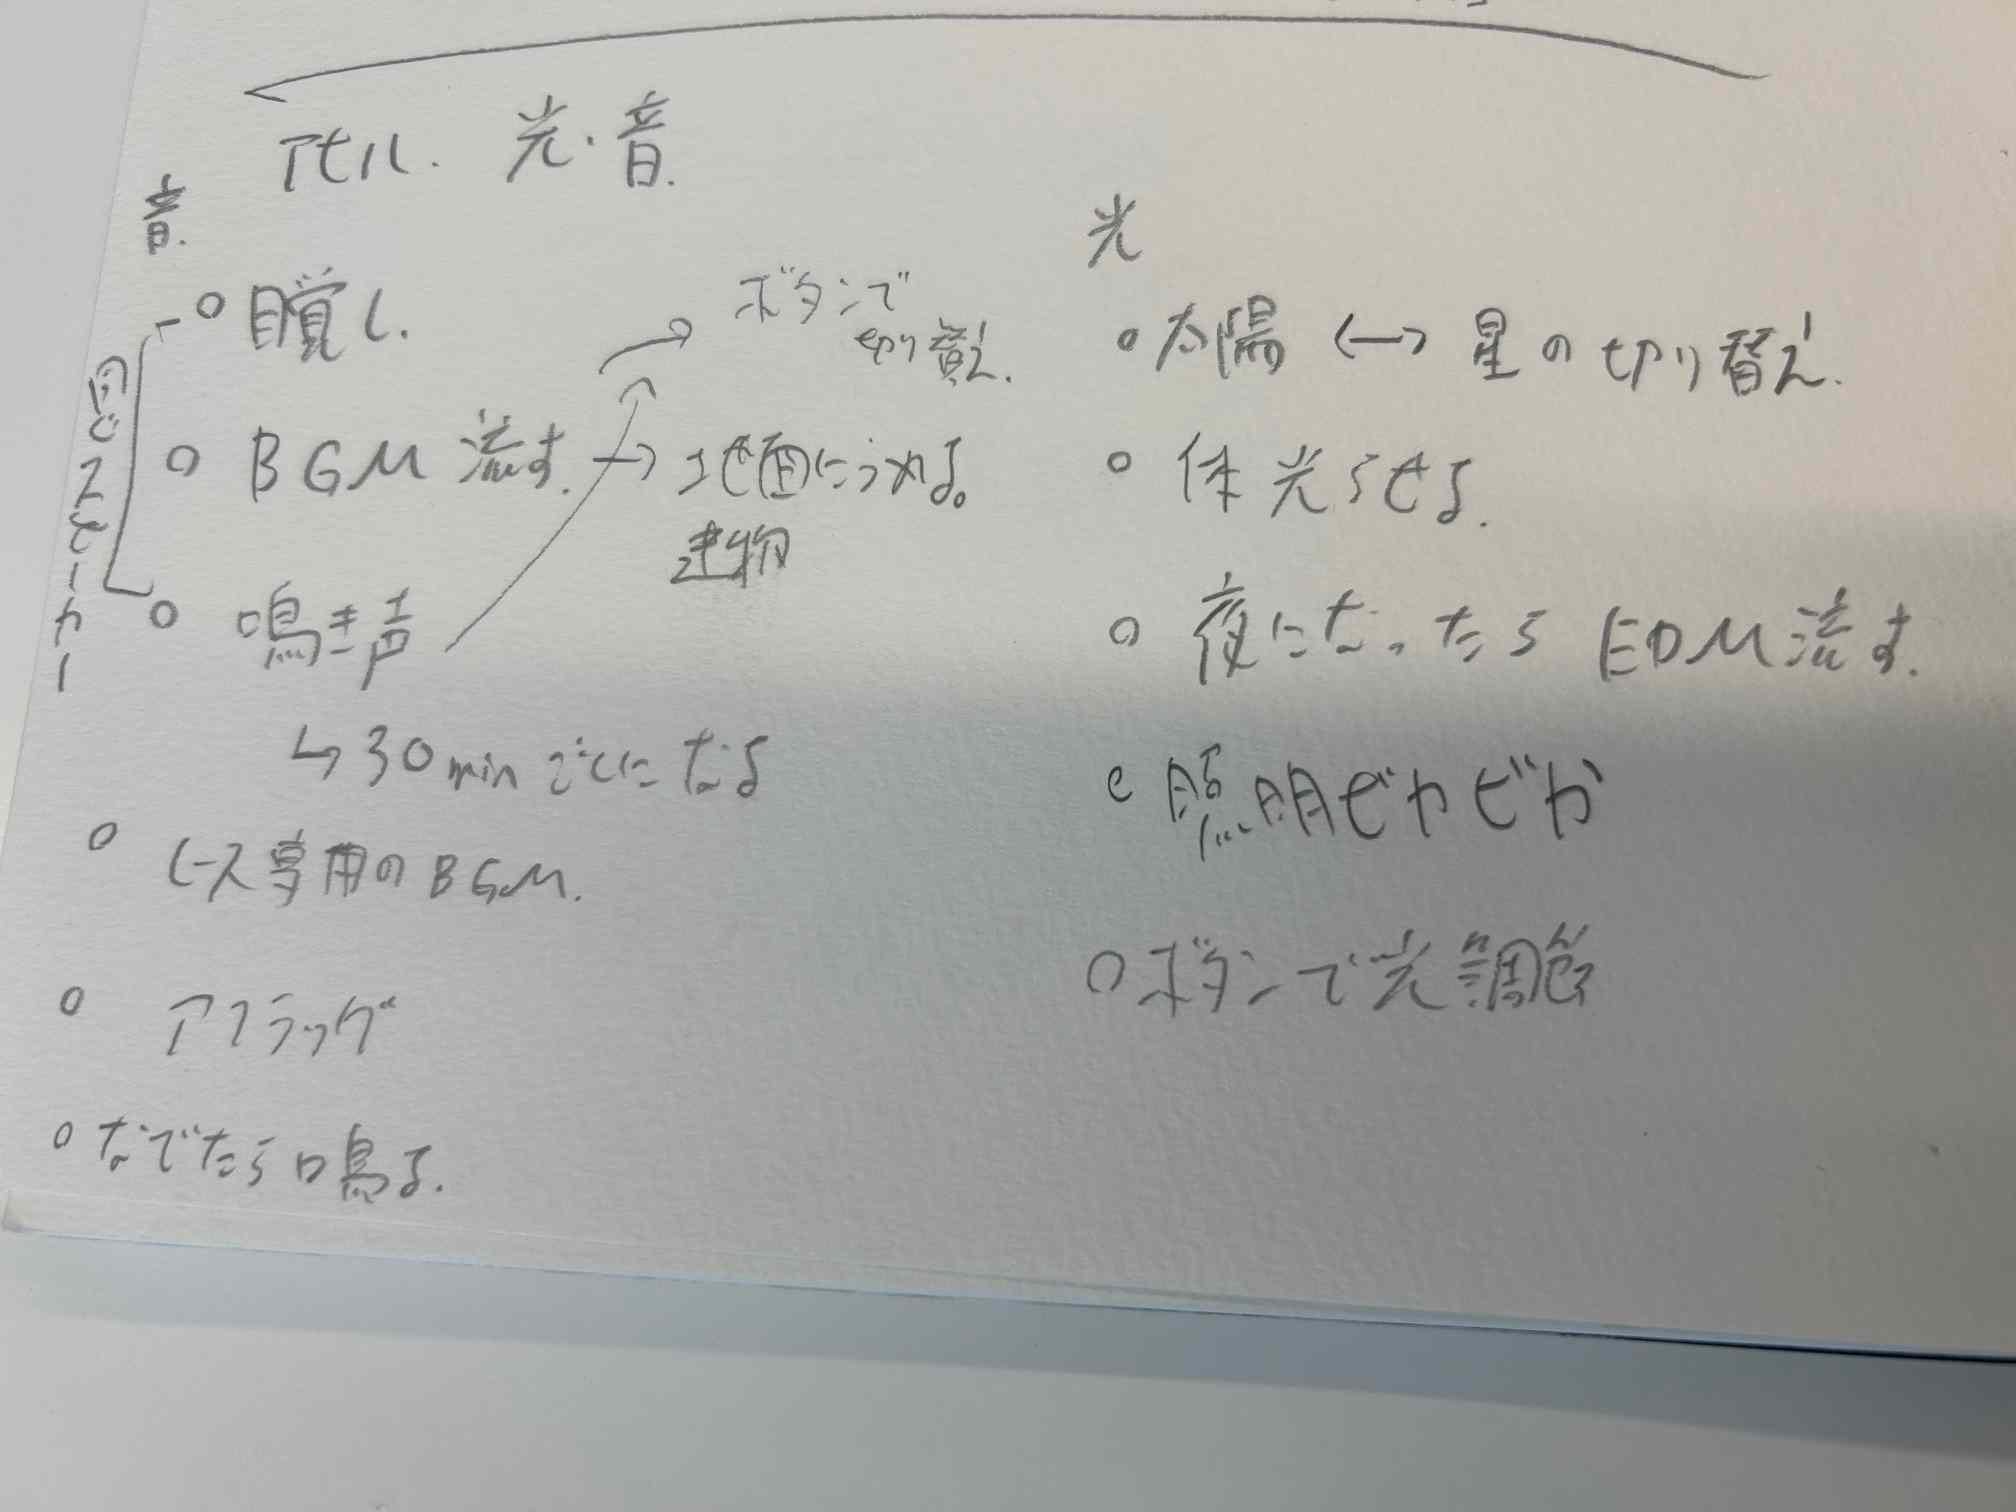 アヒル. 光・音.
音.
○ 目覚し.
○ BGM 流す. → 地面にうめる。
建物
ボタンで
切り替え.
○ 鳴き声
↳ 30min ごとになる
同じスピーカー
○ ヒース専用のBGM.
○ アフラック
○ なでたら鳴る.
光
○ 太陽 ↔ 星の切り替え.
○ 体光らせる.
○ 夜になったら EDM流す.
○ 照明ピカピカ
○ ボタンで光調節